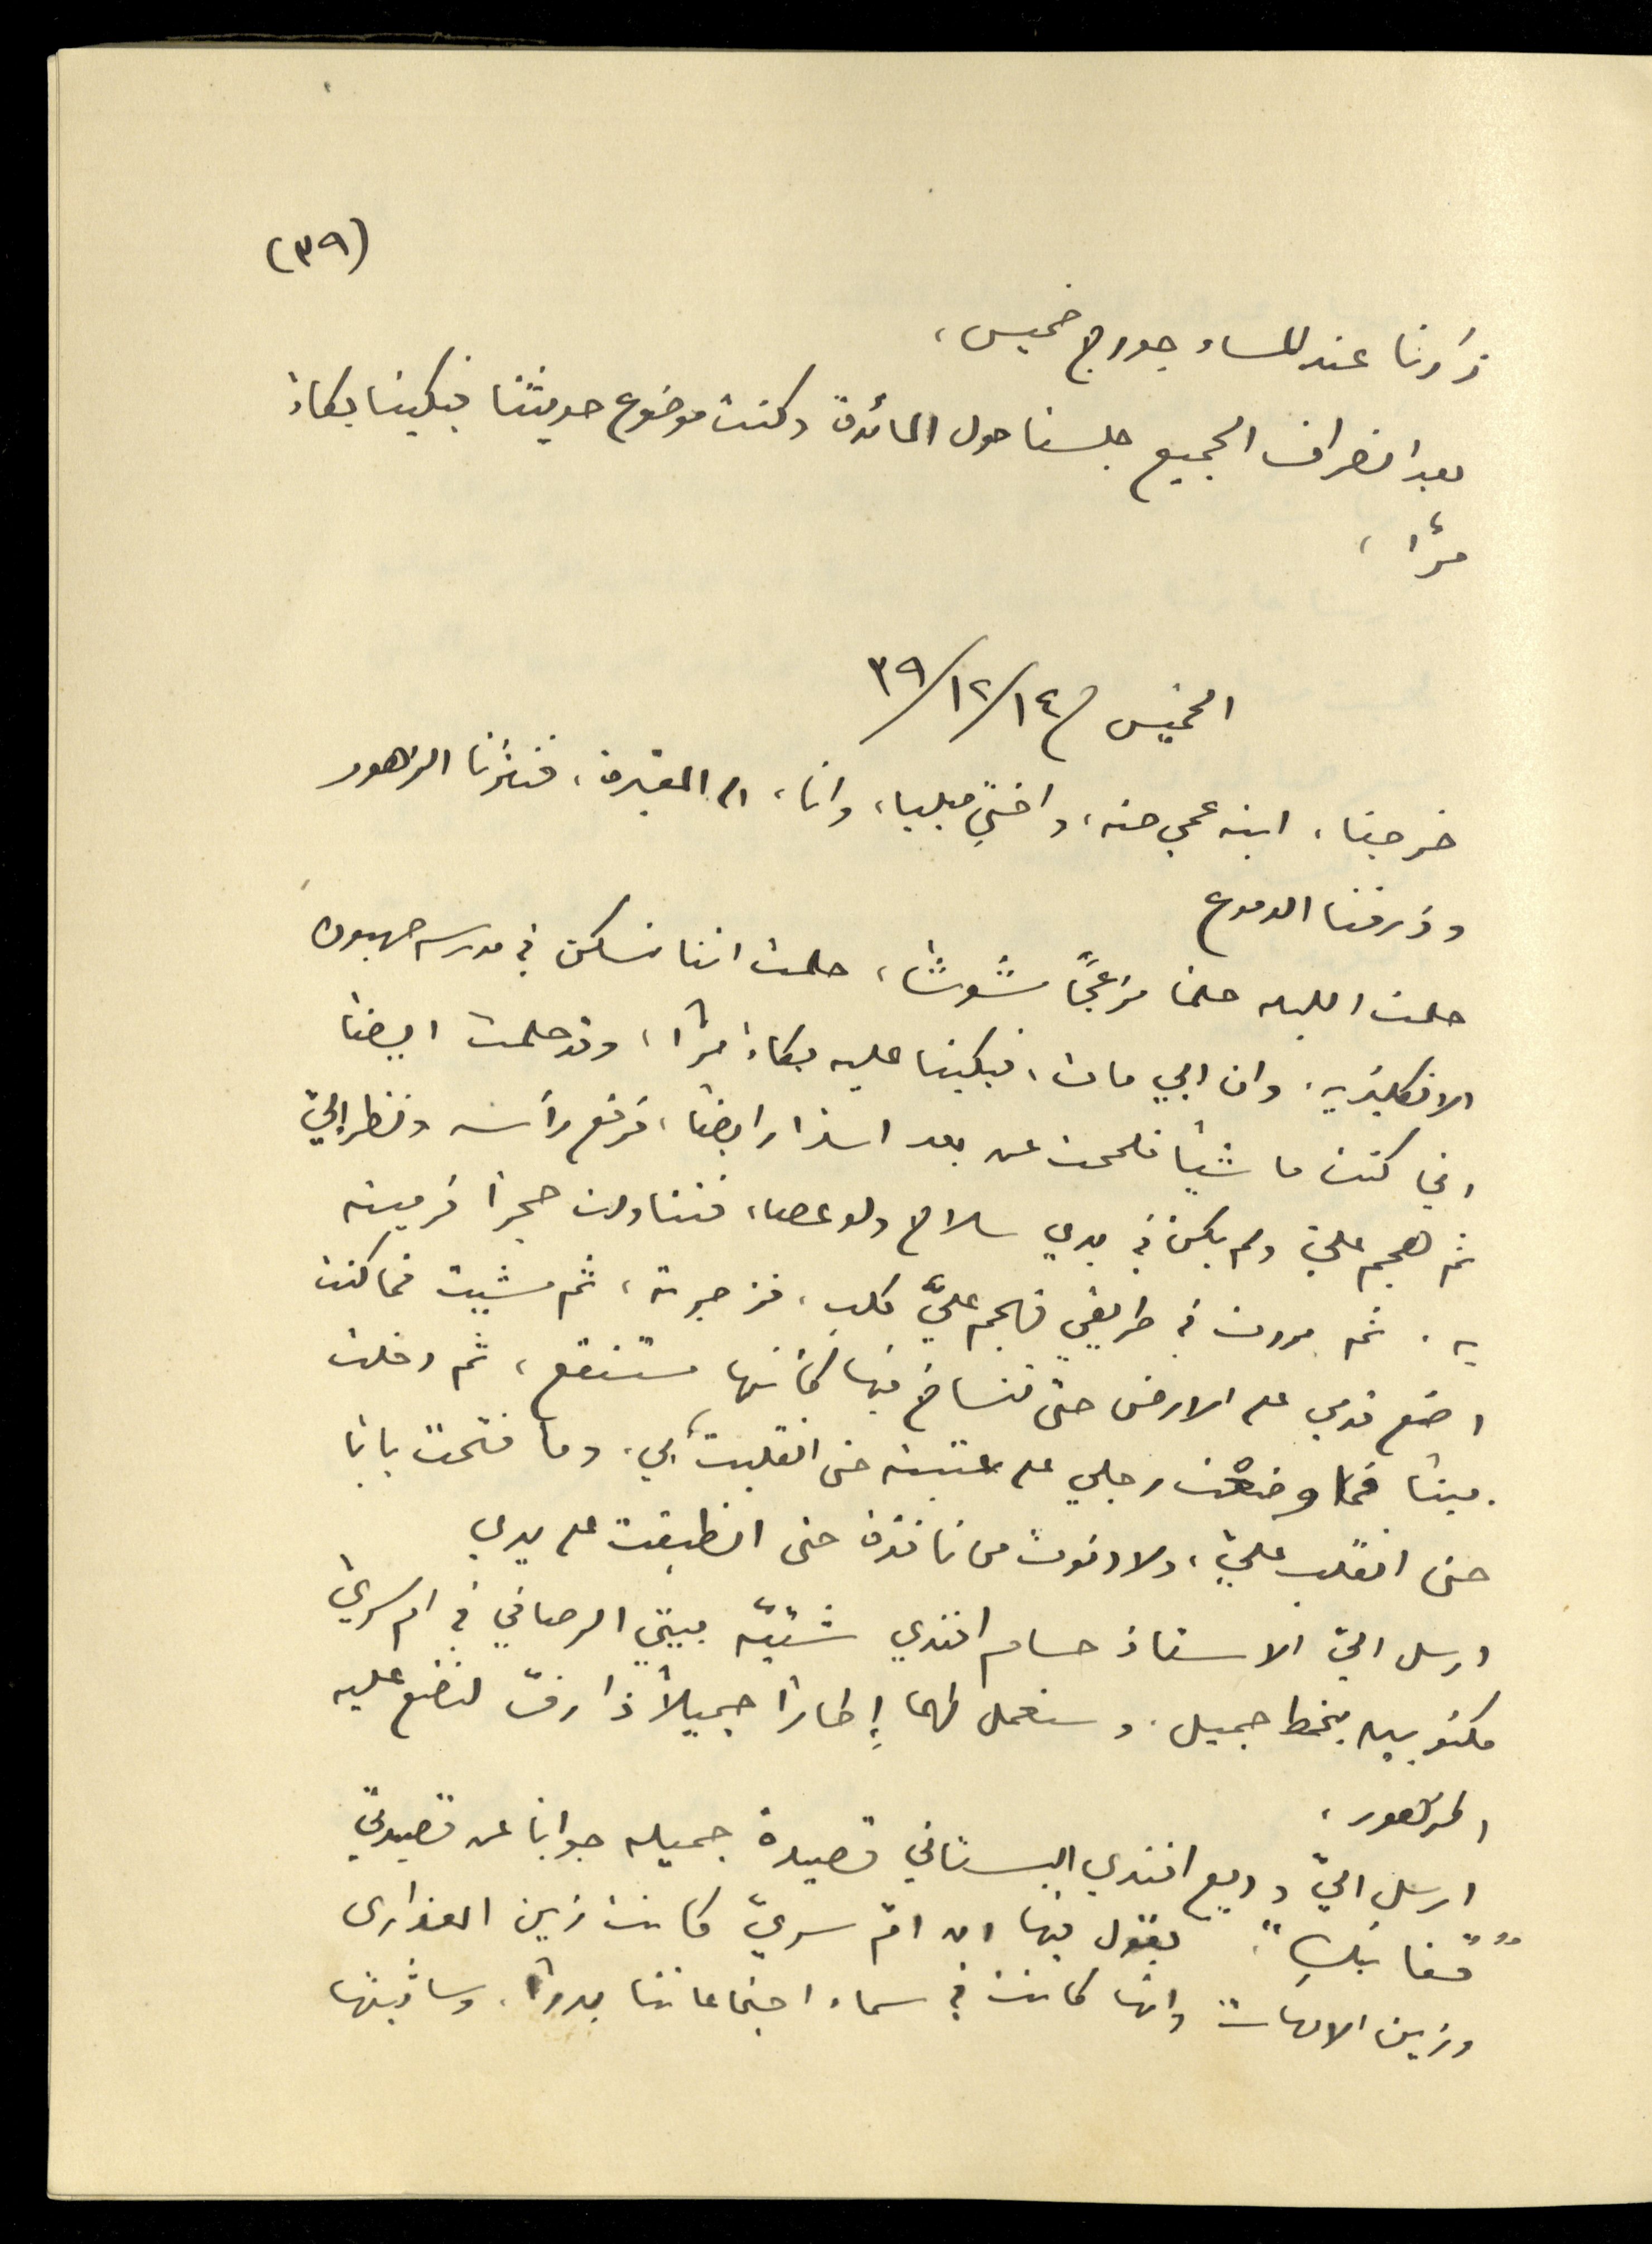 (٣٩)
زارنا عند المساء جورج خميس،
بعد انصراف الجميع جلسنا حول المائدة وكنت موضوع حديثنا فبكينا بكاءً
مرًّا،
الخميس ١٤/١٢/٣٩
خرجنا، ابنة عمي حنه، واختي ميليا، وانا، الى المقبرة، فنثرنا الزهور
وذرفنا الدموع
حلمت الليله حلمًا مزعجًا مشوشًا، حلمت اننا نسكن في مدرسه صهيون
الانكليزيه، وان ابي مات، فبكينا عليه بكاءً مرًّا، وقد حلمت ايضًا
اني كنت ماشيًا فلمحت عن بعد اسدًا رابضًا، فرفع رأسه ونظر اليّ
ثم هجم عليّ ولم يكن في يدي سلاح ولا عصا، فتناولت حجرًا فرميته
به. ثم مررت في طريقي فهجم عليّ كلب، فزجرته، ثم مشيت فما كنت
اضع قدمي على الارض حتى تنساخ فيها كأنها مستنقع، ثم دخلت
بيتًا فما وضعت رجلي على عتبته حتى انقلبت بي، وما فتحت بابًا
حتى انقلب عليّ، ولا دنوت من نافذة حتى انطبقت على يدي
ارسل اليّ الاستاذ حسام افندي بيتي الرصافي في ام سريّ
مكتوبين بخط جميل. وسنعمل لهما إطارًا جميلًا ذا رفّ لنضع عليه
الزهور،
ارسل اليّ وديع افندي البستاني قصيدة جميله جوابًا عن قصيدتي
"قفا نبكِ". يقول فيها ان امّ سريّ كانت زين العذارى
وزين الامهات وانها كانت في سماء اجتماعاتنا بدرًا. وسأثبتها